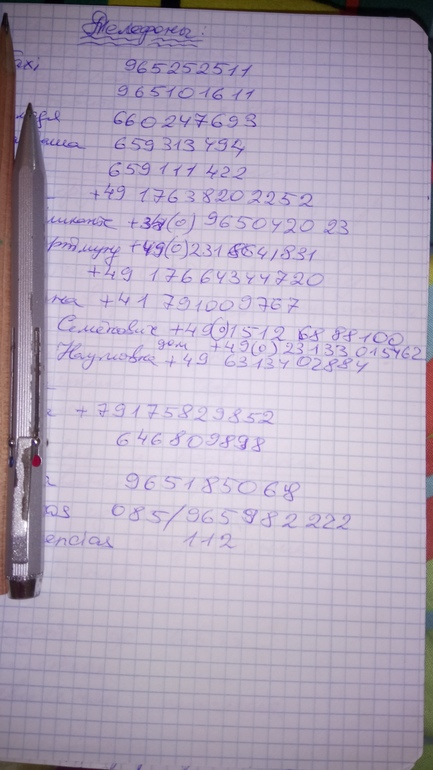 Телефоны:
965252511
965101611
660247693
659313494
659111422
+49 17638202252
+34(0) 965042023
+49(0)231
+49 17664344720
+41 791009767
Семёнович +49(0)1512 6888100
дом +49(0)23133015462
Наумовна +49 6313402884
+79175829852
646809898
965185068
085/965982222
encias 112